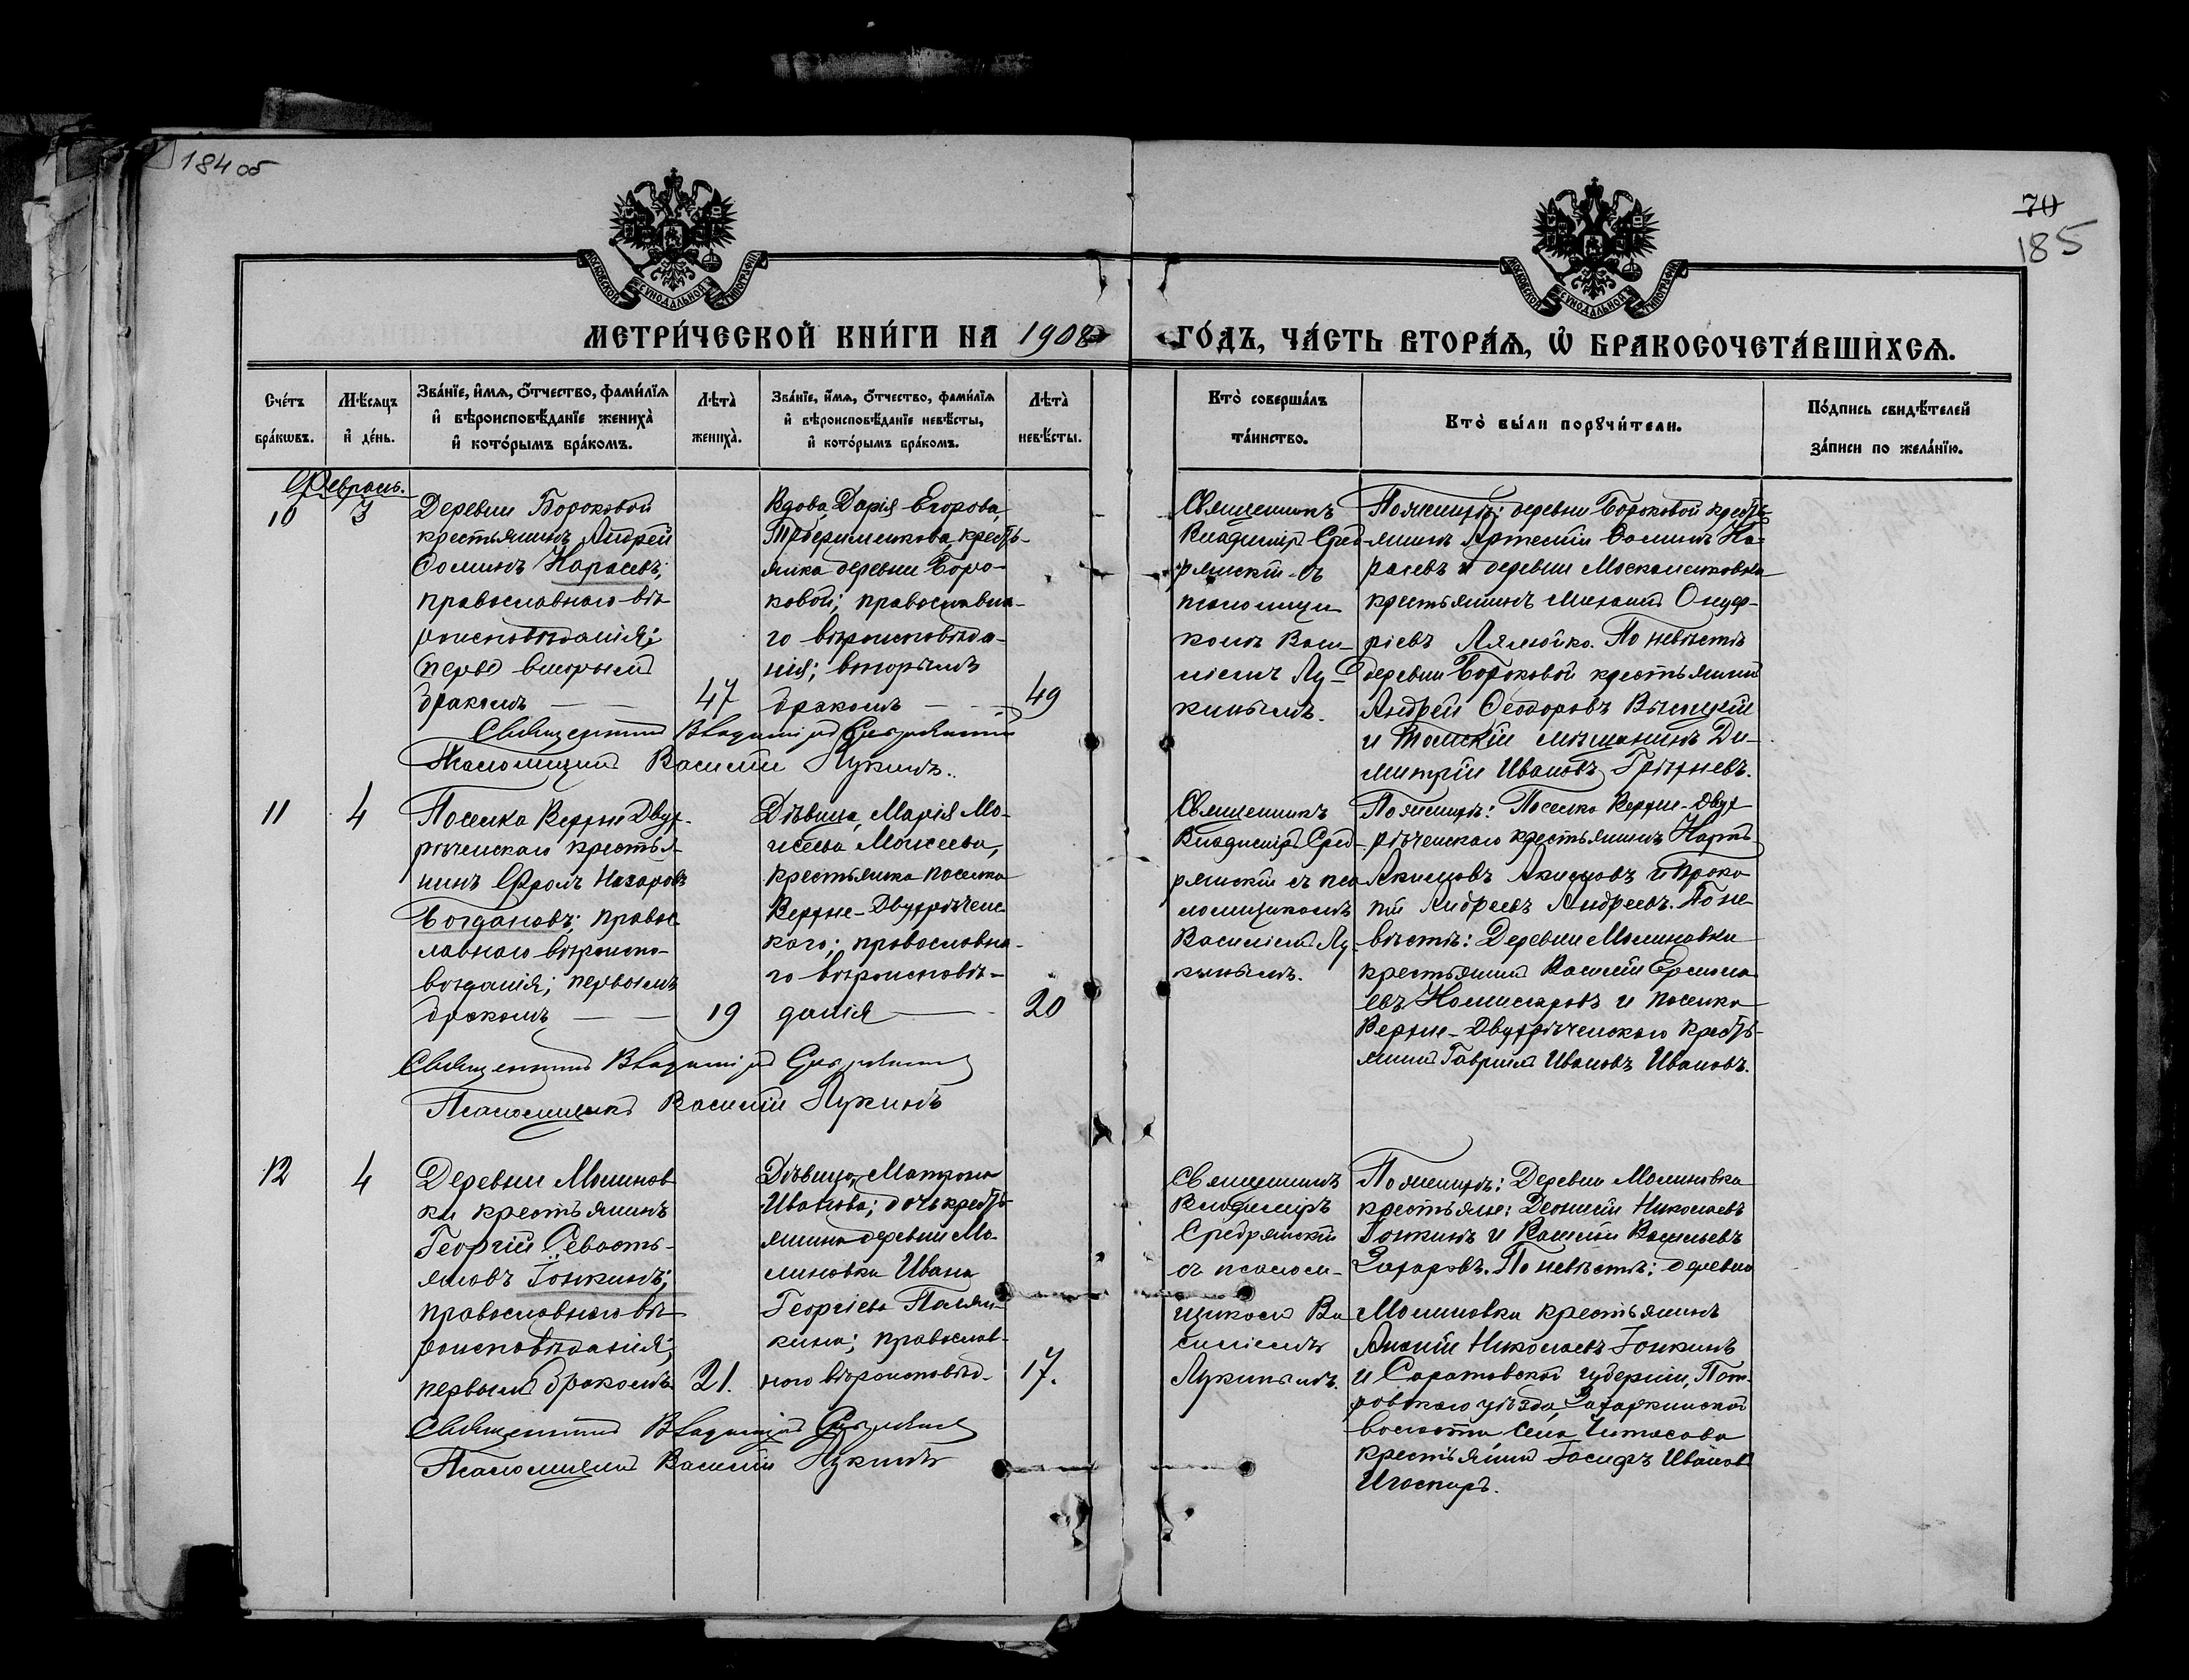 184 об
70
185
МОСКОВСКОЙ СУНОДАЛЬНОЙ ТИПОГРАФІИ
МОСКОВСКОЙ СУНОДАЛЬНОЙ ТИПОГРАФІИ
МЕТРИ́ЧЕСКОЙ КНИ́ГИ НА 1908
ГО́ДЪ, ЧА́СТЬ ВТОРА́Ѧ, Ѡ҆ БРАКОСОЧЕТА́ВШИХСѦ.
Сче́тъ бра́кѡвъ.
Мѣ́сѧцъ и҆ де́нь.
Зва́нїе, и҆́мѧ, о҆́тчество, фами́лїѧ
и҆ вѣроисповѣ́данїе жениха̀
и҆ кото́рымъ бра́комъ.
Лѣта̀ жениха̀.
Зва́нїе, и҆́мѧ, о҆́тчество, фами́лїѧ
и҆ вѣроисповѣ́данїе невѣ́сты,
и҆ кото́рымъ бра́комъ.
Лѣта̀ невѣ́сты.
Кто̀ соверша́лъ
та́инство.
Кто̀ бы́ли порꙋчи́тели.
По́дпись свидѣ́телей
за́писи по жела́нїю.
Февраль.
10
3
Деревни Бороковой
крестьянинъ Андрей
Ѳоминъ Карасевъ;
православнаго вѣ-
роисповѣданія;
вторымъ
бракомъ — —
47
Вдова Дарія Егорова
крестъ-
янка деревни Боро-
ковой; православна-
го вѣроисповѣда-
нія; вторымъ
бракомъ — —
49
Священникъ
Владиміръ Сред-
рянскій съ
псаломщи
комъ Васи-
ліемъ Лу-
кинымъ.
По женихѣ: деревни Бороковой кресть-
янинъ Артемій Ѳоминъ Ка-
расевъ и деревни
крестьянинъ Михаилъ Онуф-
ріевъ По невѣстѣ
деревни Бороковой крестьянинъ
Андрей Ѳеодоровъ
и Томскій мѣщанинъ Ди-
митрій Ивановъ
Священникъ Владиміръ
Псаломщикъ Василій Лукинъ.
11
4
Поселка Верхне Двух-
рѣченскаго крестья-
нинъ Фролъ Назаровъ
Богдановъ; правос
лавнаго вѣроиспо-
вѣданія; первымъ
бракомъ — —
19
Дѣвица, Марія Мо-
исеева Моисеева,
крестьянка поселка
Верхне-Двухрѣченс-
каго; православна-
го вѣроисповѣ-
данія —
20
Священникъ
Владиміръ Сред-
рянскій съ пса
ломщикомъ
Василіемъ Лу-
кинымъ.
По женихѣ: Поселка Верхне-Двух-
рѣченскаго крестьянинъ Карпъ
Акимовъ Акимовъ и Проко
пій Андреевъ Андреевъ. По не-
вѣстѣ: Деревни Малиновки
крестьянинъ Василій Ермола
евъ Комисаровъ и поселка
Верхне-Двухрѣченскаго кресть-
янинъ Гавріилъ Ивановъ Ивановъ.
Священникъ Владиміръ
Псаломщикъ Василій Лукинъ
12
4
Деревни Малинов
ки крестьянинъ
Георгій Севасть-
яновъ Гонкинъ;
православнаго вѣ-
роисповѣданія;
первымъ бракомъ
21.
Дѣвица, Матрона
Иванова; дочь кресть
янина деревни Ма-
линовки Ивана
Георгіева
православ-
наго вѣроисповѣд.
17.
Священникъ
Владиміръ
Средрянскій
съ псалом-
щикомъ Ва
силіемъ
Лукинымъ.
По женихѣ: Деревни Малиновки
крестьяне: Николаевъ
Гонкинъ и Василій Васильевъ
Захаровъ. По невѣстѣ: деревни
Малиновки крестьянинъ
Николаевъ Гонкинъ
и Саратовской губерніи, Пет-
ровскаго уѣзда, Захаркинской
волости села
крестьянинъ Іосифъ Ивановъ
Священникъ Владиміръ
Псаломщикъ Василій Лукинъ